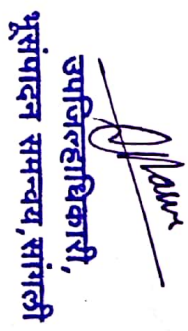 उपजिल्हाधिकारी,
भूसंपादन समन्वय, सांगली